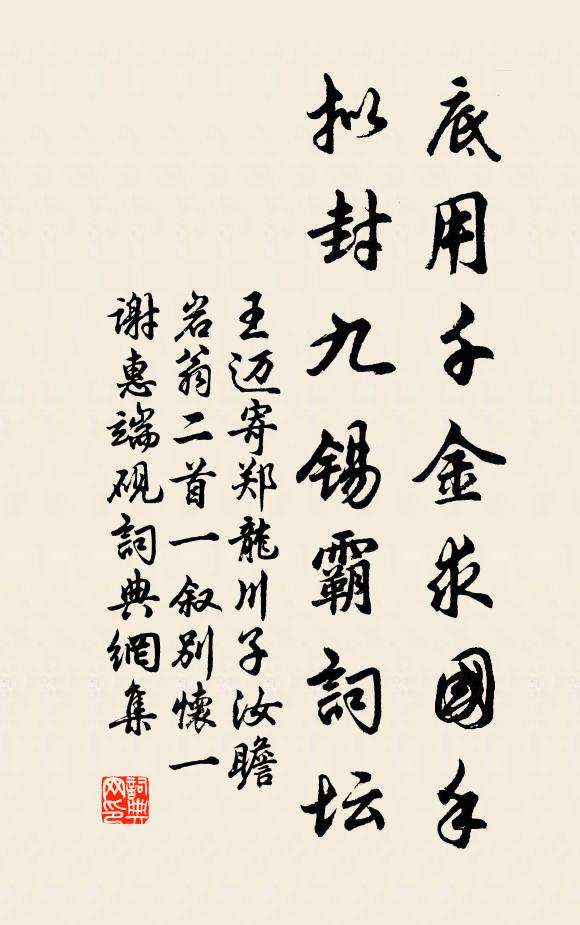 底用千金求國手
拟封九锡霸詞坛
王迈寄郑龍川子汝瞻
岩翁二首一叙别懷一
谢惠端砚詞典網集
詞典
网印